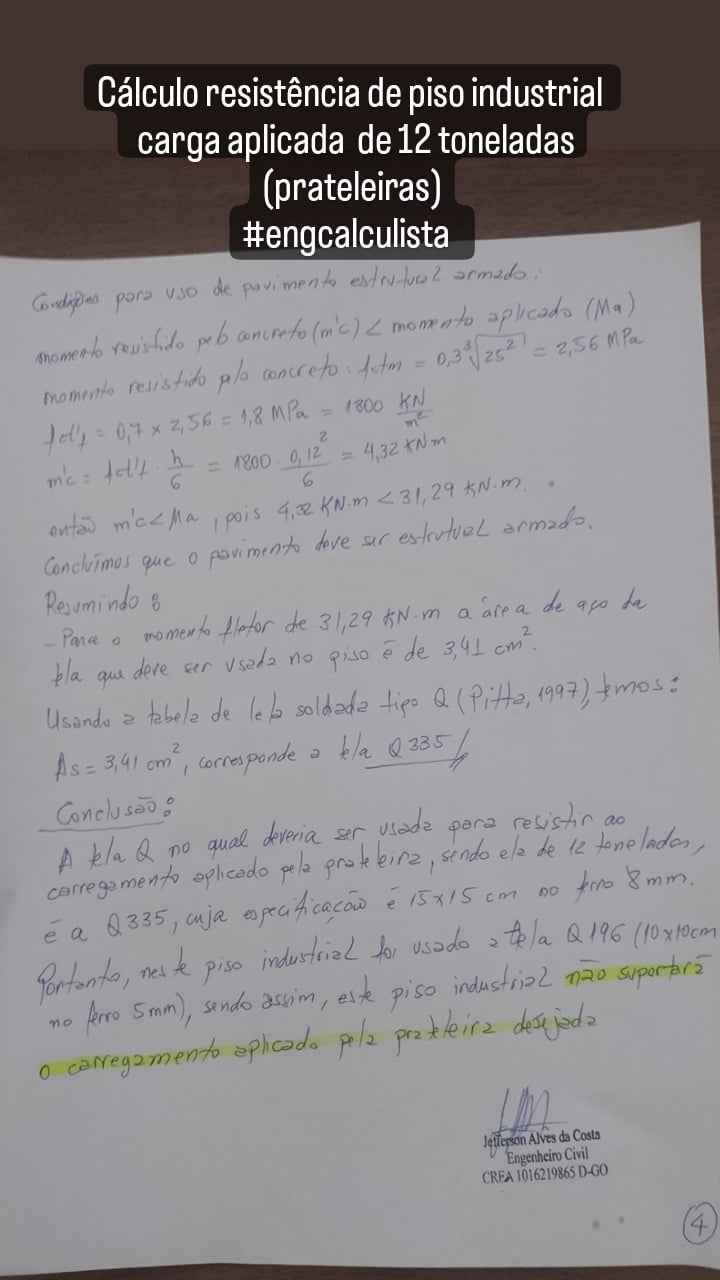 Cálculo resistência de piso industrial
carga aplicada de 12 toneladas
(prateleiras)
#engcalculista
Condições para uso de pavimento estrutural armado:
momento resistido pelo concreto (m'c) < momento aplicado (Ma)
momento resistido p/o concreto: fctm = 0,3 ∛25² = 2,56 MPa
fct'f = 0,7 x 2,56 = 1,8 MPa = 1800 KN/m²
m'c = fct'f . h/6 = 1800 . 0,12²/6 = 4,32 KNm
então m'c < Ma, pois 4,32 KN.m < 31,29 KN.m.
Concluímos que o pavimento deve ser estrutual armado.
Resumindo:
- Para o momento fletor de 31,29 KN.m a área de aço da
tela que deve ser usada no piso é de 3,41 cm².
Usando a tabela de tela soldada tipo Q (Pitta, 1997), temos:
As = 3,41 cm², corresponde a tela Q335/
Conclusão:
A tela Q no qual deveria ser usada para resistir ao
carregamento aplicado pela prateleira, sendo ela de 12 toneladas,
é a Q335, cuja especificação é 15x15 cm no ferro 8mm.
Portanto, neste piso industrial foi usado a tela Q196 (10x10cm
no ferro 5mm), sendo assim, este piso industrial não suportará
o carregamento aplicado pela prateleira desejada
Jefferson Alves da Costa
Engenheiro Civil
CREA 1016219865 D-GO
4